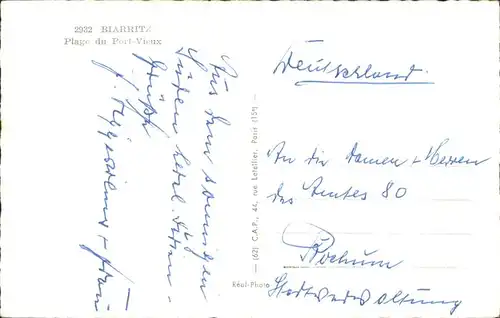 2932 BIARRITZ
Plage du Port-Vieux
Aus dem sonnigen
Süden herzl.
Grüße
+ Frau
— (62) C.A.P., 44, rue Letellier, Paris (15e) —
Réal-Photo
Deutschland.
An die Damen + Herren
des Amtes 80
Bochum
Stadtverwaltung